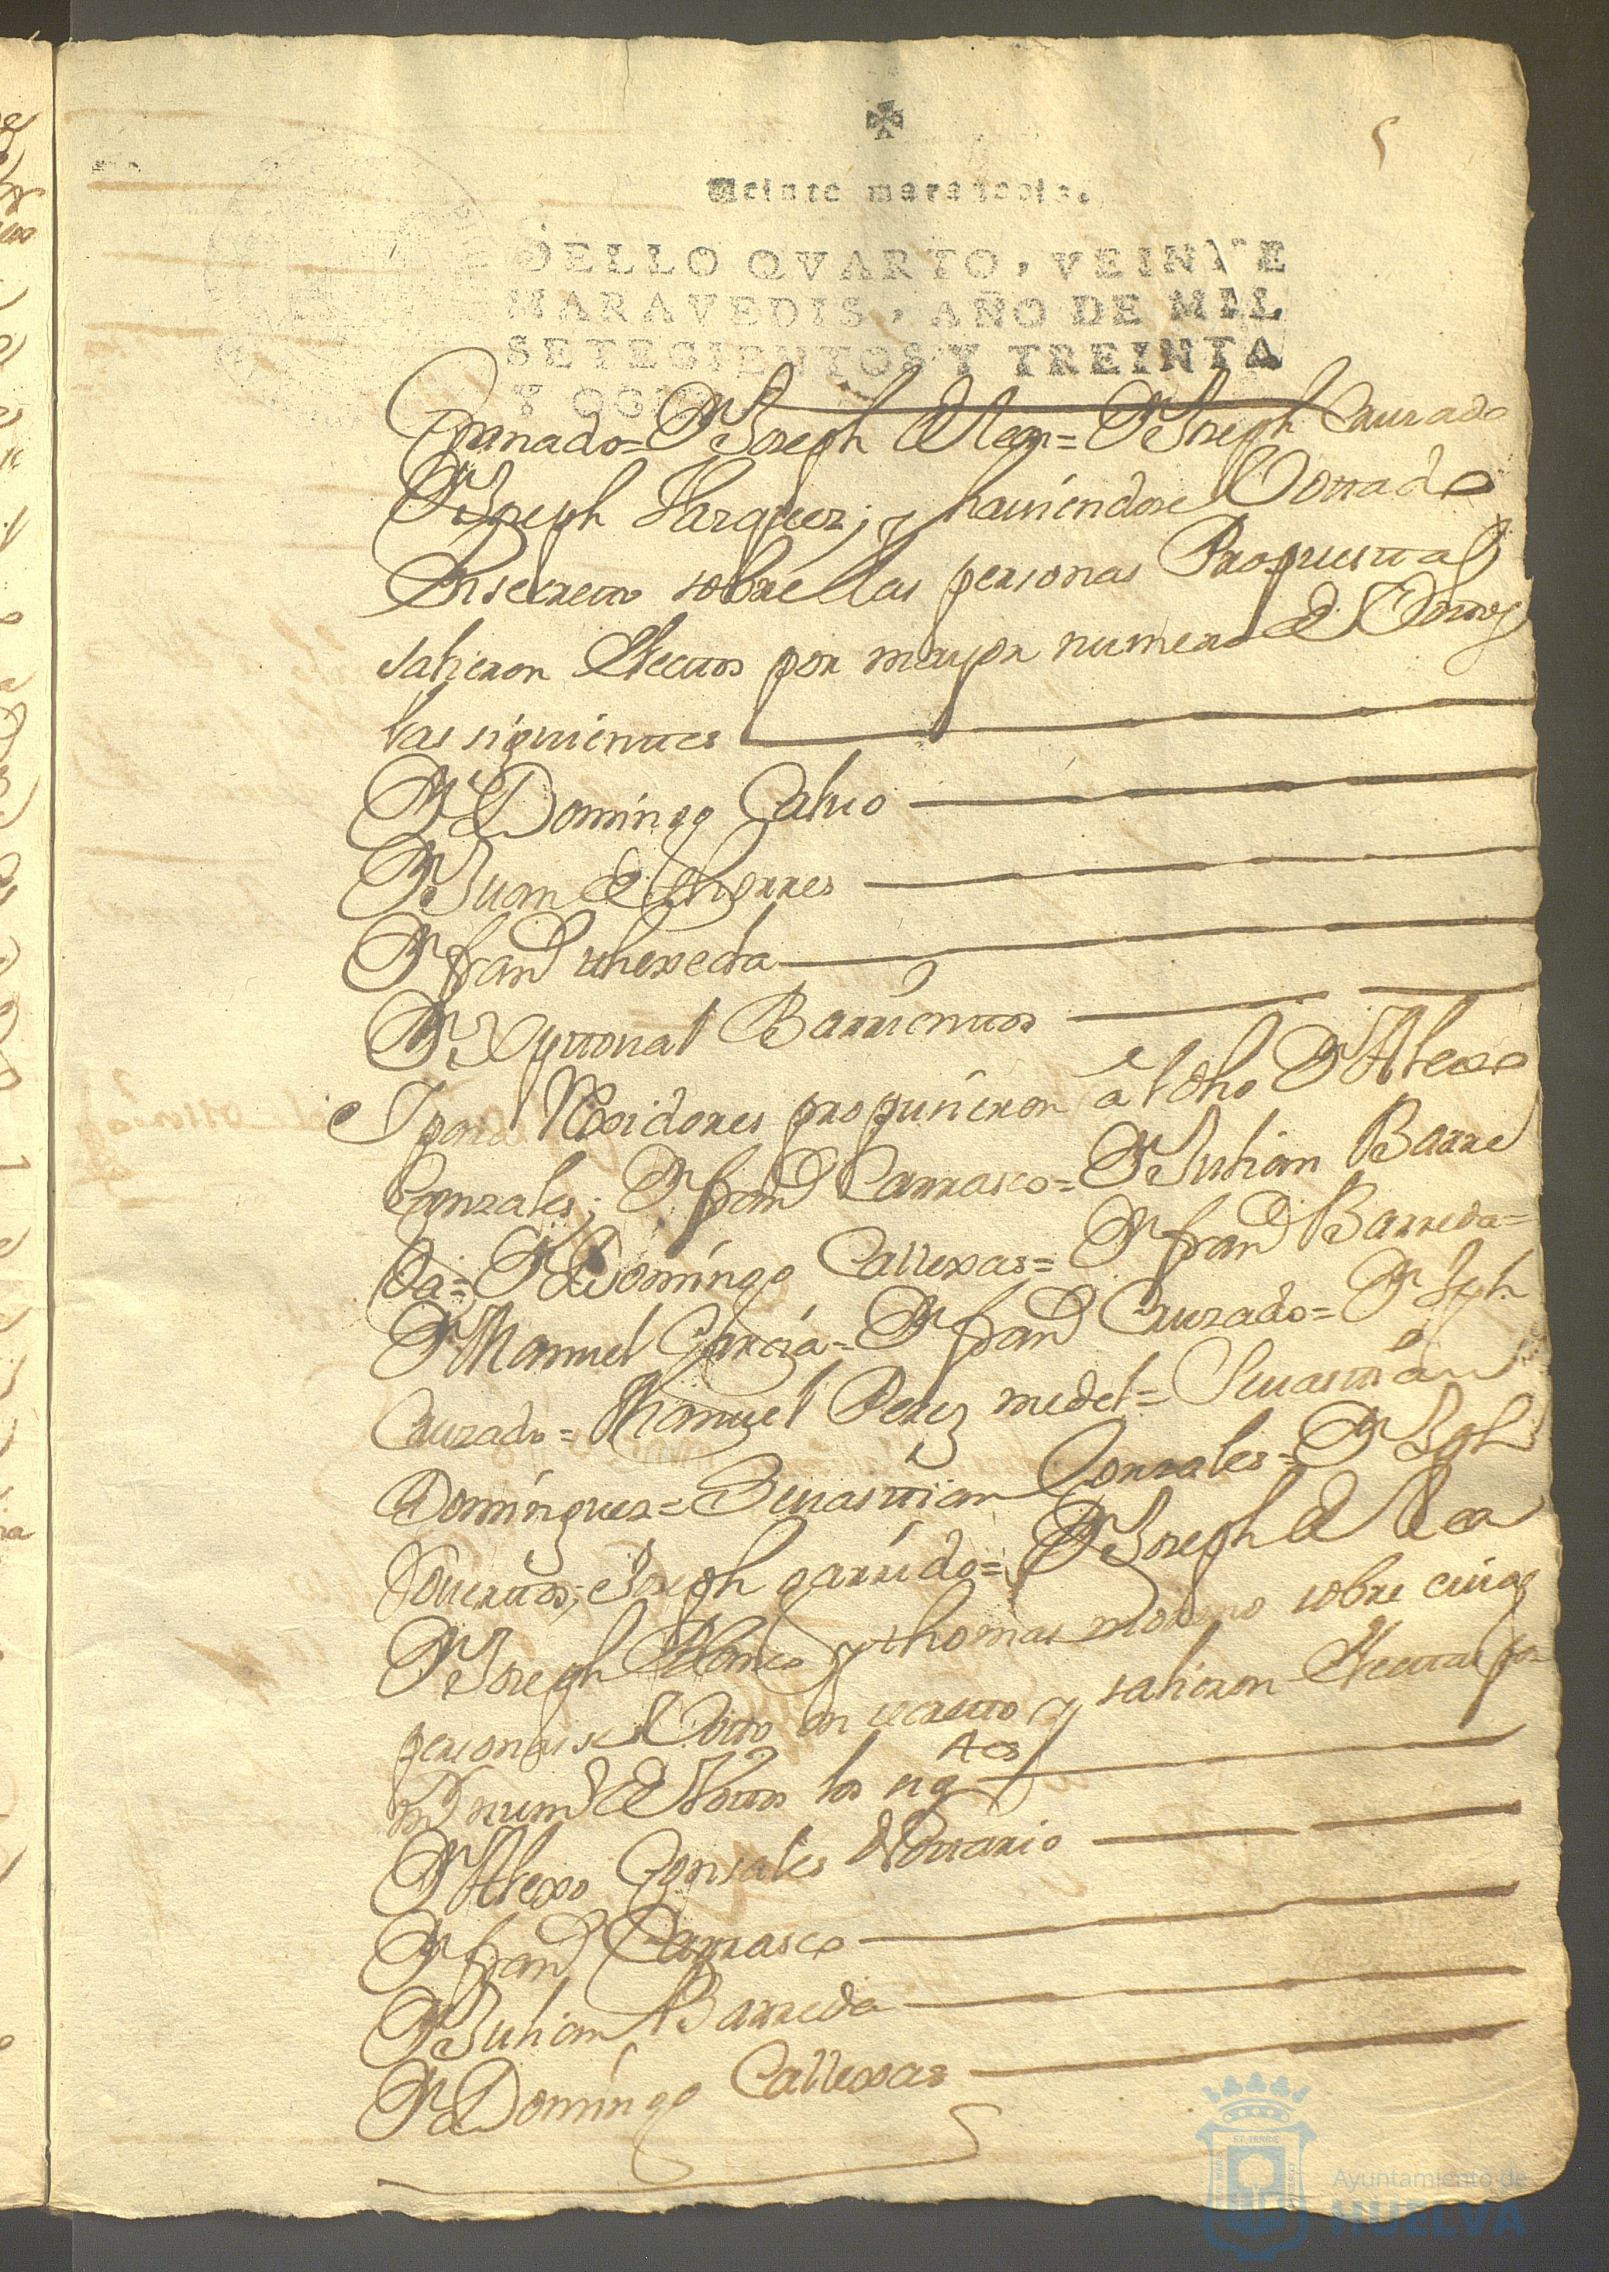 5
Veinte maravedis.
SELLO QVARTO, VEINTE
MARAVEDIS, AÑO DE MIL
SETECIENTOS Y TREINTA
Y OCHO
Granado = Dn Joseph de Lean = Dn Joseph Cruzado
Dn Joseph Vazquez; y haviendose Votado
En secreto sobre las personas Propuestas
salieron Electos por mayor numero de Votos
las siguientes
Dn Domingo Calvo
Dn Juan de Thorres
Dn Franco
Dn Xptoval Barrientos
Y para Rexidores propusieron a el dho Dn Alexo
Gonzales; Dn Franco Carrasco = Dn Julian Barre
da = Dn Domingo Callexas = Dn Franco Barreda =
Dn Manuel Garcia = Dn Franco Cruzado = Dn Jph
Cruzado = Manuel Perez medel = Sevastian
Dominguez = Sevastian Gonzales = Dn Jph
Joseph garrido = Dn Joseph de Lea
Dn Joseph Blanco y thomas moreno sobre cuias
personas se Voto en secreto y salieron Electas por
mor numo de Votos los sigtes
Dn Alexo Gonsales Notario
Dn Franco Carrasco
Dn Julian Barreda
Dn Domingo Callexas
Ayuntamiento de
HUELVA